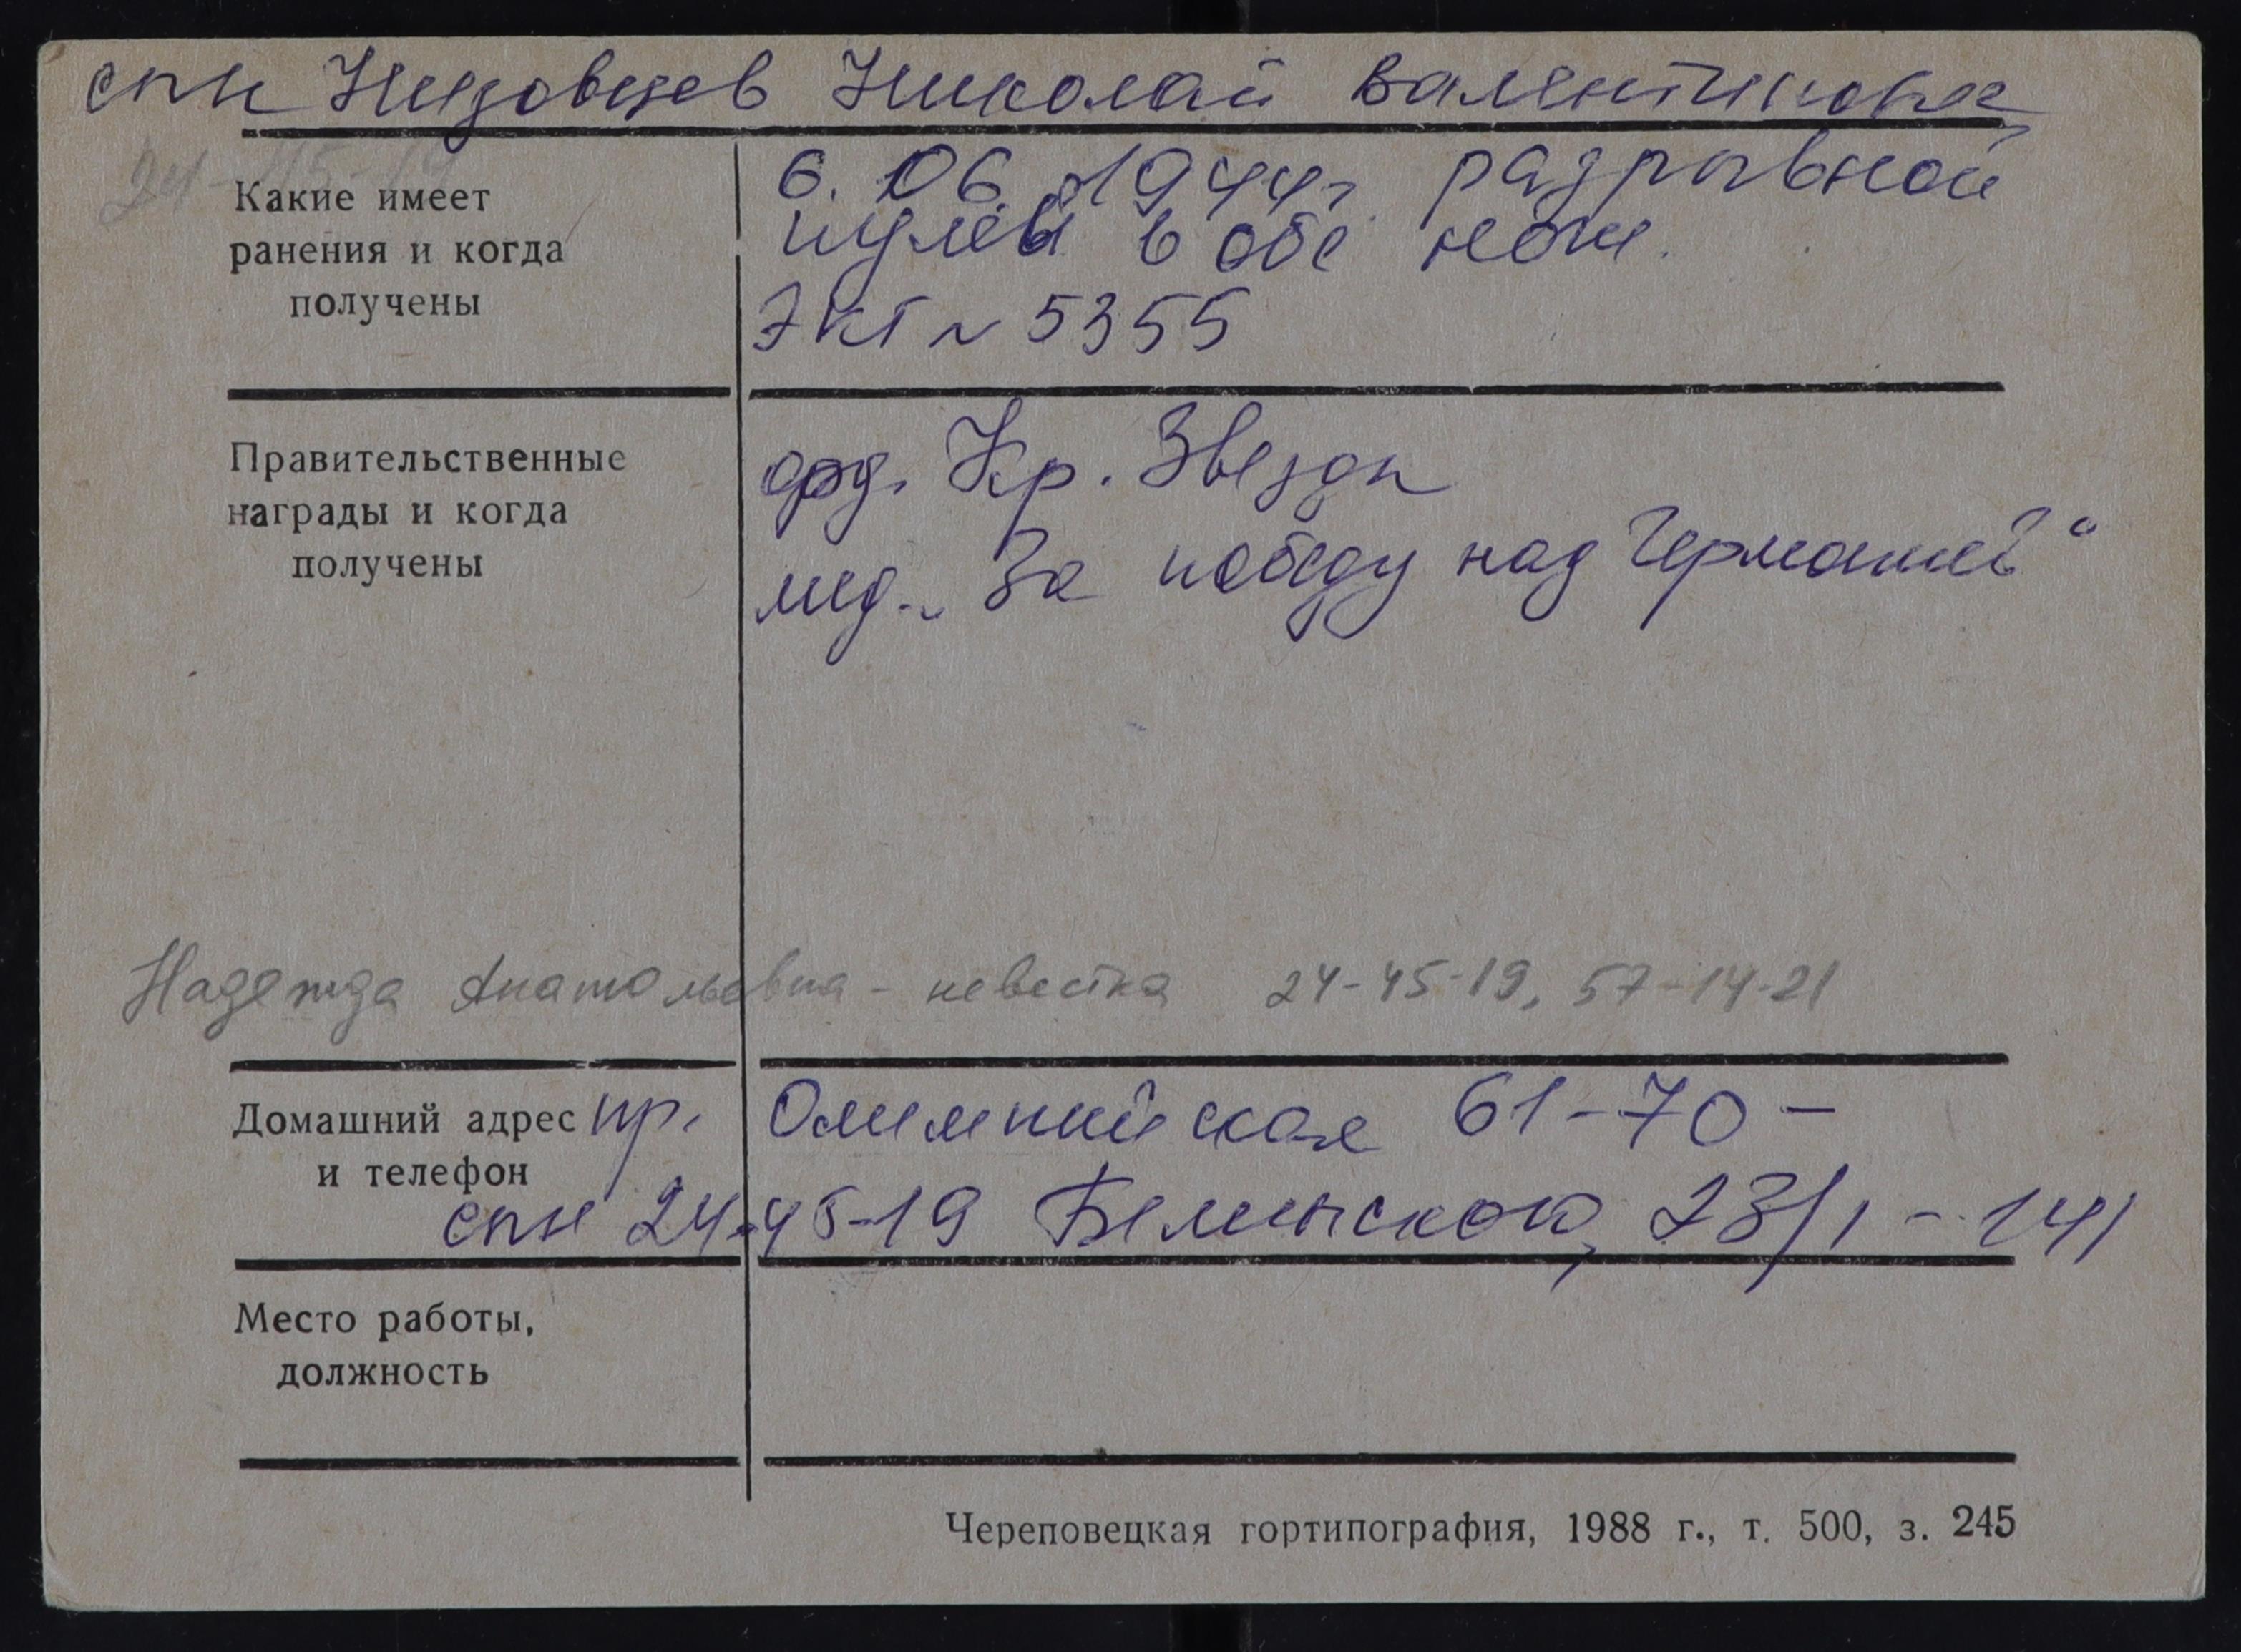 сын Низовцев Николай Валентинович
24-45-19
Какие имеет ранения и когда получены
6.06.1944г. разрывной
пулей в обе ноги.
ЭКГ № 5355
Правительственные награды и когда получены
орд. Кр. Звезды
мед. „За победу над Германией“
Надежда Анатольевна - невестка 24-45-19, 57-14-21
Домашний адрес и телефон
пр. Олимпийская 61-70-
сын 24-45-19 Белинского, 23/1-141
Место работы, должность
Череповецкая гортипография, 1988 г., т. 500, з. 245